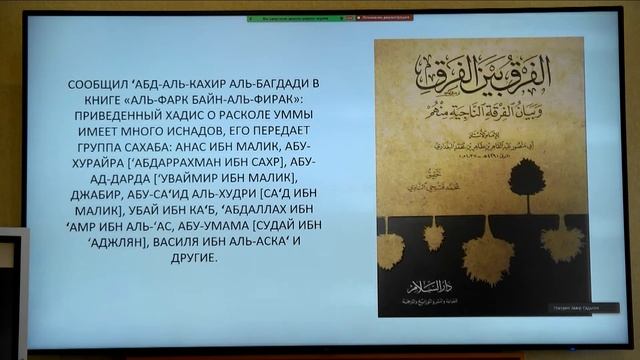 СООБЩИЛ ‘АБД-АЛЬ-КАХИР АЛЬ-БАГДАДИ В
КНИГЕ «АЛЬ-ФАРК БАЙН-АЛЬ-ФИРАК»:
ПРИВЕДЕННЫЙ ХАДИС О РАСКОЛЕ УММЫ
ИМЕЕТ МНОГО ИСНАДОВ, ЕГО ПЕРЕДАЕТ
ГРУППА САХАБА: АНАС ИБН МАЛИК, АБУ-
ХУРАЙРА [‘АБДАРРАХМАН ИБН САХР], АБУ-
АД-ДАРДА [‘УВАЙМИР ИБН МАЛИК],
ДЖАБИР, АБУ-СА‘ИД АЛЬ-ХУДРИ [СА‘Д ИБН
МАЛИК], УБАЙ ИБН КА‘Б, ‘АБДАЛЛАХ ИБН
‘АМР ИБН АЛЬ-‘АС, АБУ-УМАМА [СУДАЙ ИБН
‘АДЖЛЯН], ВАСИЛЯ ИБН АЛЬ-АСКА‘ И
ДРУГИЕ.
الفرق بين الفرق
وبيان الفرقة الناجية منهم
تحقيق
دار السلام